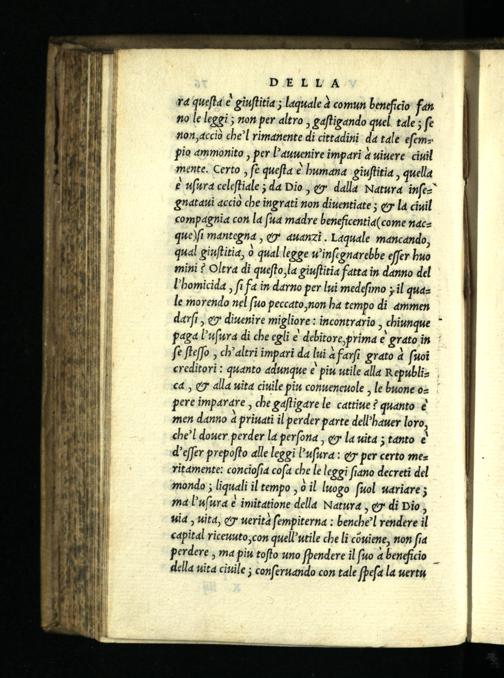 DELLA
ra questa è giustitia; laquale à comun beneficio fan
no le leggi; non per altro, gastigando quel tale; se
non, acciò che'l rimanente di cittadini da tale esem-
pio ammonito, per l'auuenire impari à uiuere ciuil
mente. Certo, se questa è humana giustitia, quella
è usura celestiale; da Dio, & dalla Natura inse-
gnataui acciò che ingrati non diuentiate; & la ciuil
compagnia con la sua madre beneficentia (come nac-
que) si mantegna, & auanzi. Laquale mancando,
qual giustitia, ò qual legge u'insegnarebbe esser huo
mini? Oltra di questo, la giustitia fatta in danno del
l'homicida, si fa in darno per lui medesimo; il qua-
le morendo nel suo peccato, non ha tempo di ammen
darsi, & diuenire migliore: incontrario, chiunque
paga l'usura di che egli è debitore, prima è grato in
se stesso, ch'altri impari da lui à farsi grato à suoi
creditori: quanto adunque è piu utile alla Republi-
ca, & alla uita ciuile piu conueneuole, le buone o-
pere imparare, che gastigare le cattiue? quanto è
men danno à priuati il perder parte dell'hauer loro,
che'l douer perder la persona, & la uita; tanto è
d'esser preposto alle leggi l'usura: & per certo me-
ritamente: conciosia cosa che le leggi siano decreti del
mondo; liquali il tempo, ò il luogo suol uariare;
ma l'usura è imitatione della Natura, & di Dio,
uia, uita, & uerità sempiterna: benche'l rendere il
capital riceuuto, con quell'utile che li cōuiene, non sia
perdere, ma piu tosto uno spendere il suo à beneficio
della uita ciuile; conseruando con tale spesa la uertu